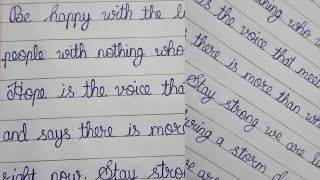 Be happy with the
people with nothing who
Hope is the voice tha
and says there is mor
right now. Stay stro
is the voice that
there is more than
Stay strong we are
ring a storm